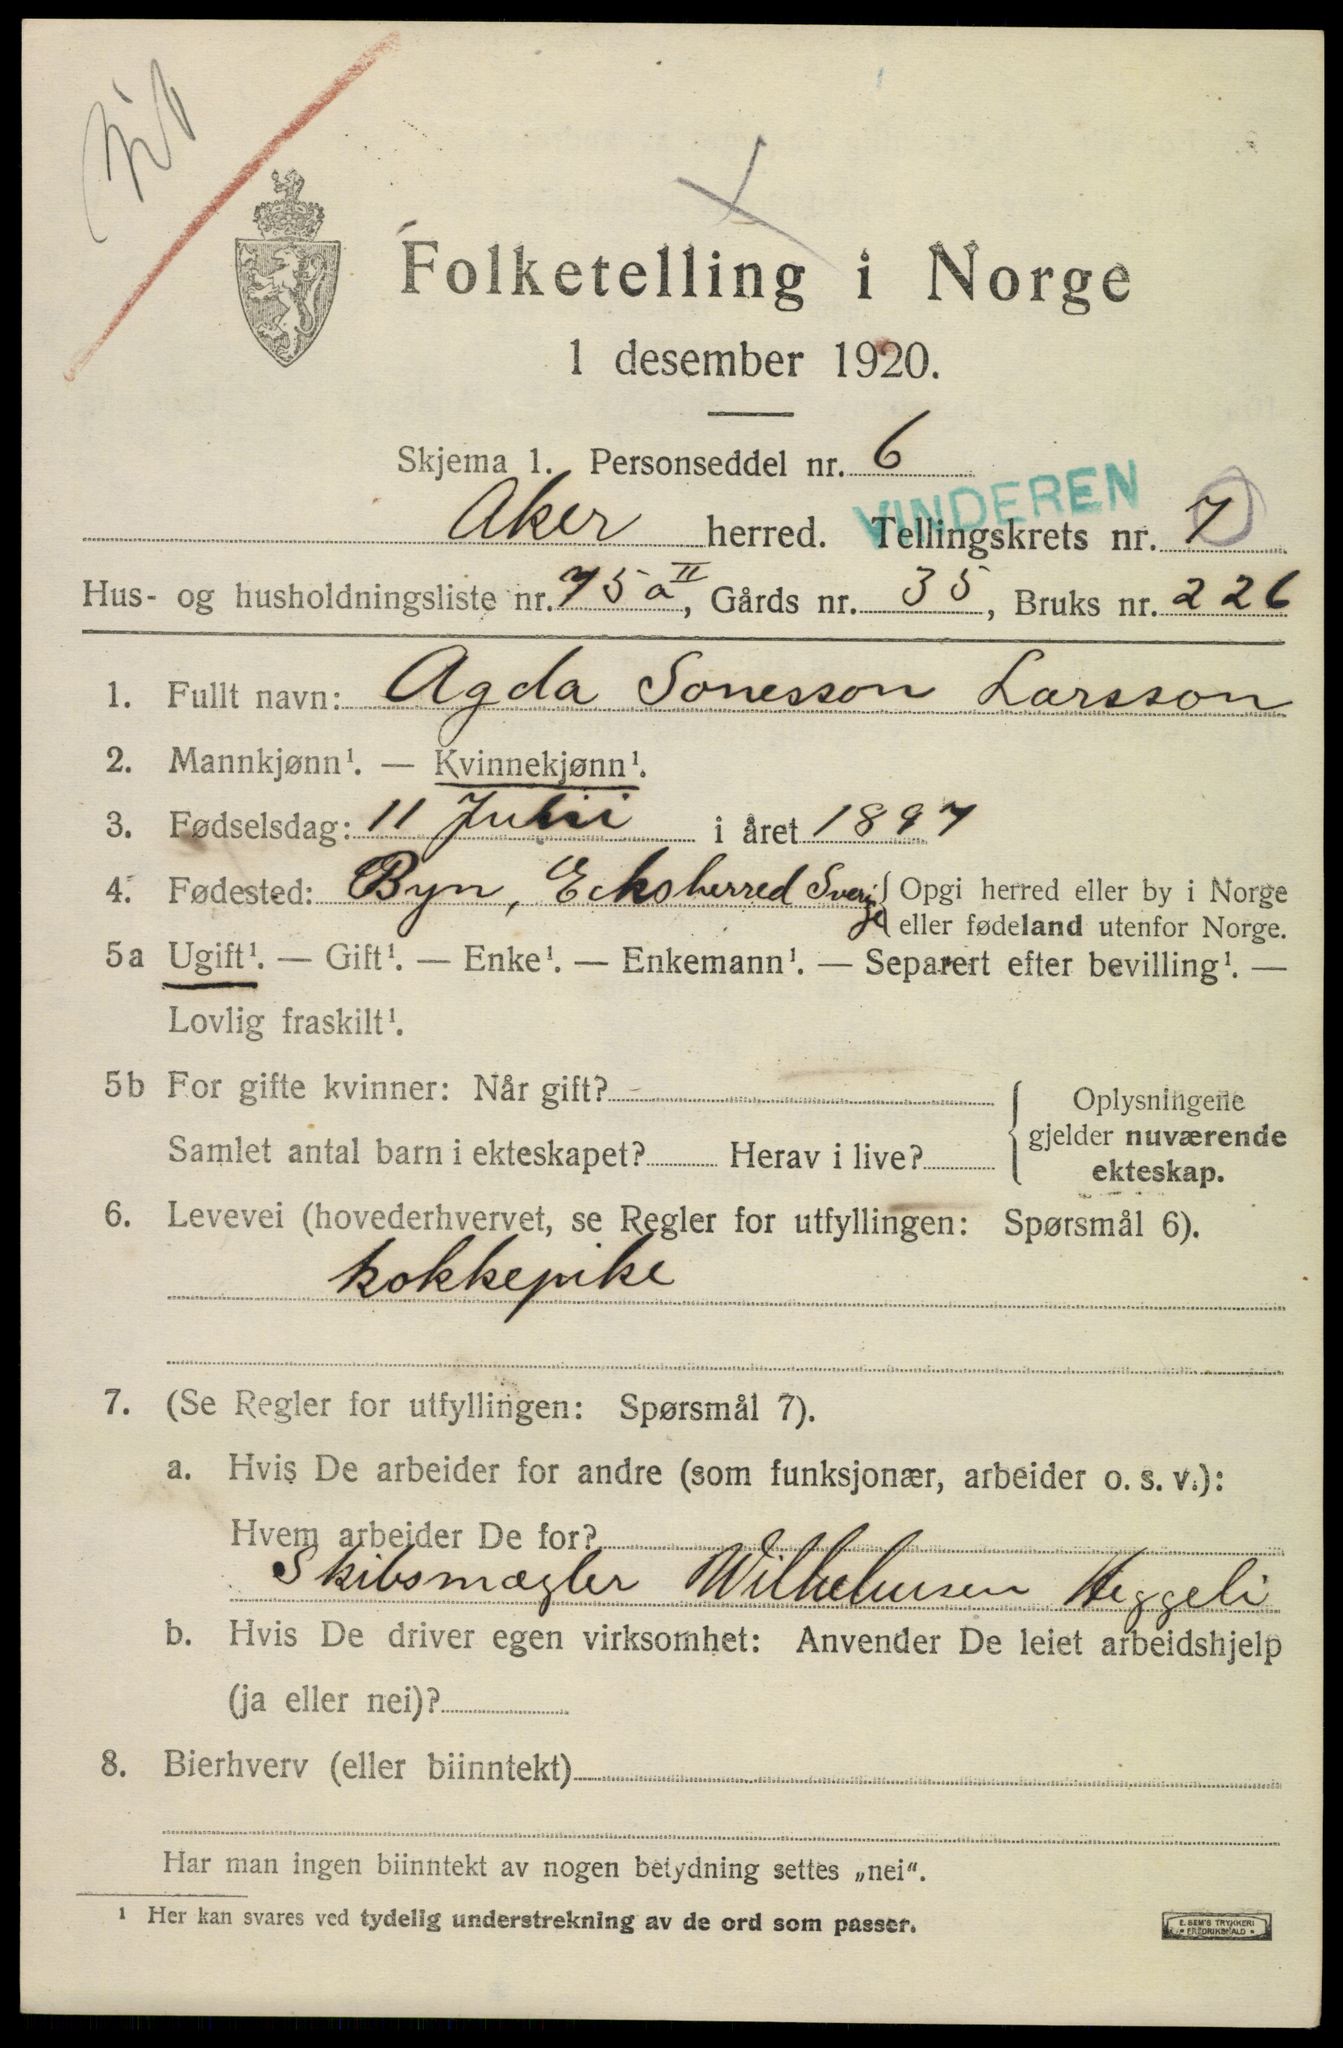 Folketelling i Norge
1 desember 1920.
Skjema 1. Personseddel nr. 6
VINDEREN
Aker herred. Tellingskrets nr. 7
Hus- og husholdningsliste nr. 75a II, Gårds nr. 35, Bruks nr. 226
1. Fullt navn: Agda Sonesson Larsson
2. Mannkjønn¹. — Kvinnekjønn¹.
3. Fødselsdag: 11 Juli i året 1897
4. Fødested: Byn, Eksherred Sverige { Opgi herred eller by i Norge
eller fødeland utenfor Norge.
5a Ugift¹. — Gift¹. — Enke¹. — Enkemann¹. — Separert efter bevilling¹. —
Lovlig fraskilt¹.
5b For gifte kvinner: Når gift? { Oplysningene
gjelder nuværende
Samlet antal barn i ekteskapet? Herav i live?
ekteskap.
6. Levevei (hovederhvervet, se Regler for utfyllingen: Spørsmål 6).
kokkepike
7. (Se Regler for utfyllingen: Spørsmål 7).
a. Hvis De arbeider for andre (som funksjonær, arbeider o. s. v.):
Hvem arbeider De for?
Skibsmægler Wilhelmsen Heggeli
b. Hvis De driver egen virksomhet: Anvender De leiet arbeidshjelp
(ja eller nei)?
8. Bierhverv (eller biinntekt)
Har man ingen biinntekt av nogen betydning settes „nei“.
¹ Her kan svares ved tydelig understrekning av de ord som passer.
E. SEM'S TRYKKERI
FREDRIKSHALD